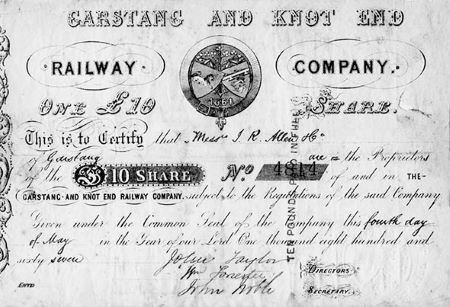 GARSTANG AND KNOT END
RAILWAY COMPANY.
1864
ONE £10 SHARE.
This is to Certify that Messrs J. R. Allen &
of Garstang are the Proprietors
of the £10 SHARE No 4814 of and in THE
GARSTANG AND KNOT END RAILWAY COMPANY, subject to the Regulations of the said Company
Given under the Common Seal of the Company this fourth day
of May in the Year of our Lord One thousand eight hundred and
sixty seven
John Taylor
Wm
John Noble
DIRECTORS
SECRETARY.
TEN POUNDS PAID IN FULL